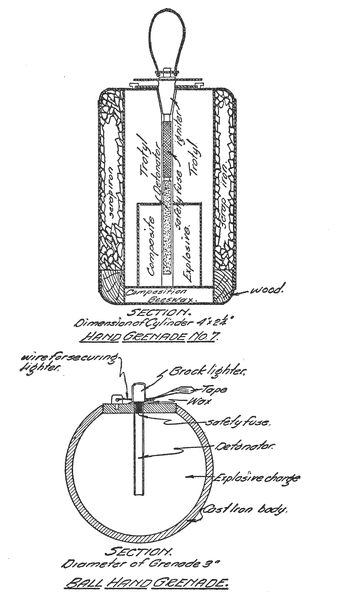 scrap iron
Trotyl
Detonator
Safety fuse
igniter
Trotyl
Scrap iron.
Composite
Explosive.
Composition
Beeswax.
wood.
SECTION.
Dimension of Cylinder 4"x2¾"
HAND GRENADE No 7.
wire for securing
lighter.
Brock lighter.
Tape
Wax
safety fuse.
Detonator.
Explosive charge
Cast Iron body.
SECTION.
Diameter of Grenade 3"
BALL HAND GRENADE.